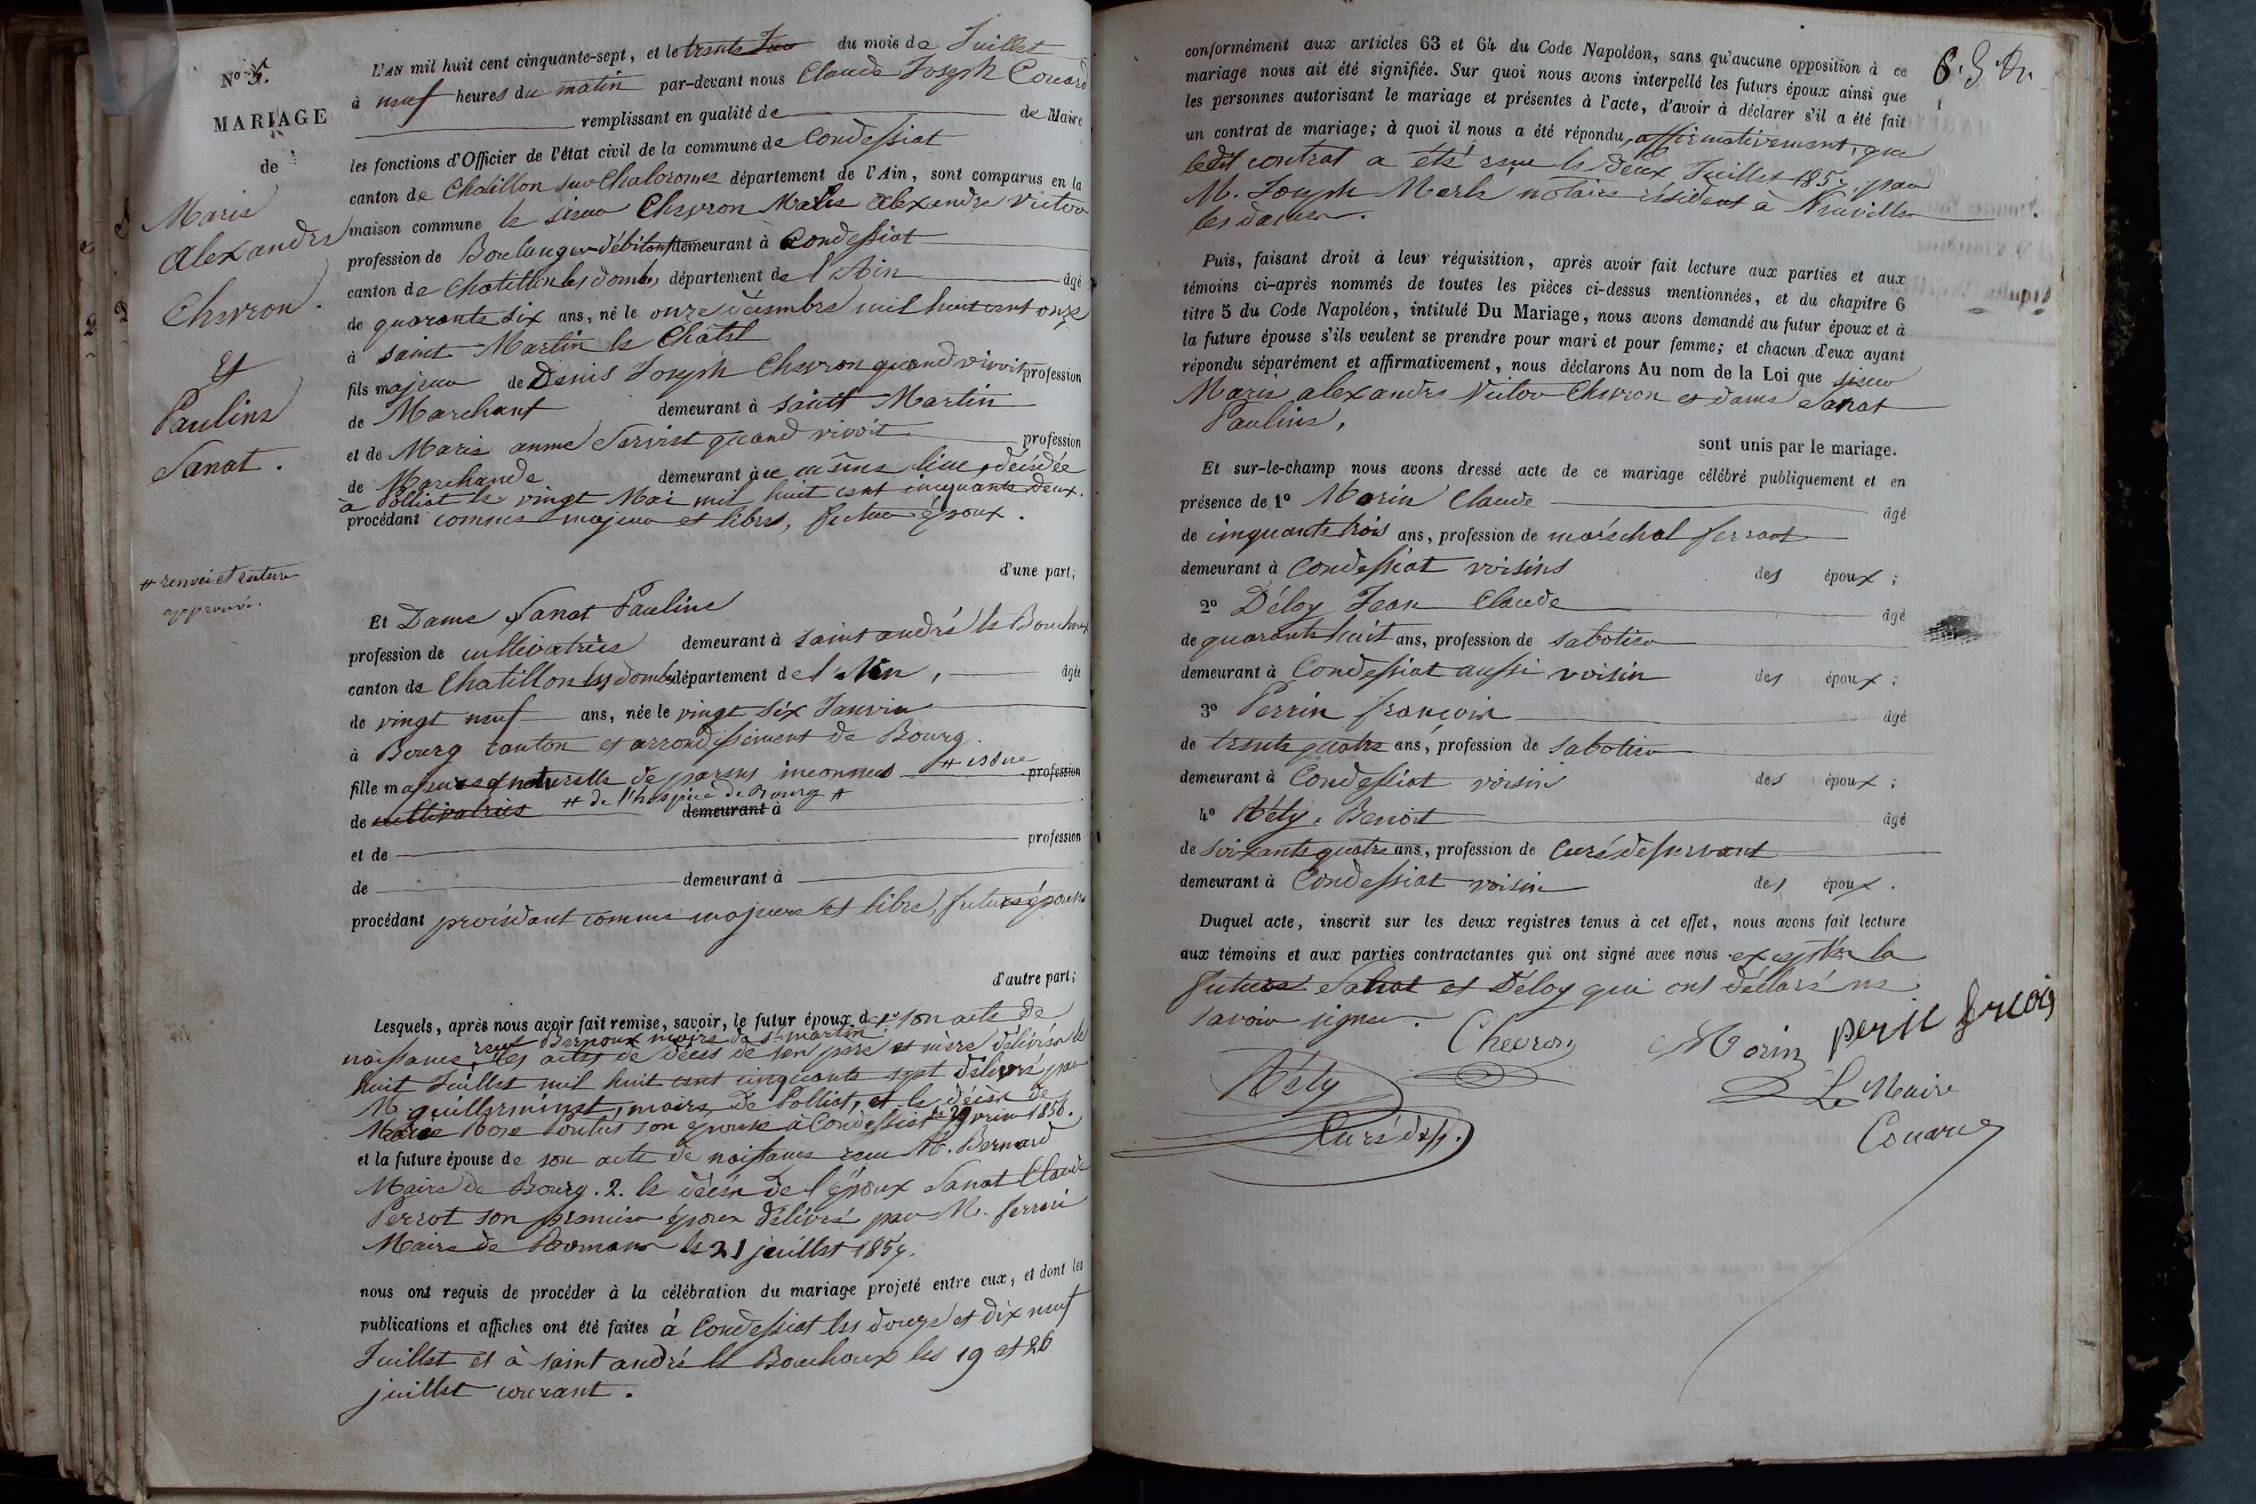 N° 5.
MARIAGE
de
Marie
Alexandre
Chevron.
Et
Pauline
Sanat.
# renvoi et rature
approuvés.
L'AN mil huit cent cinquante-sept, et le trente du mois de Juillet
à neuf heures du matin par-devant nous Claude Joseph Couard
remplissant en qualité de de Maire
les fonctions d'Officier de l'état civil de la commune de Condessiat
canton de Chatillon sur Chalaronne département de l'Ain, sont comparus en la
maison commune le sieur Chevron Marie Alexandre Victor
profession de Boulanger débitant demeurant à Condessiat
canton de Chatillon les dombes département de l'Ain âgé
de quarante six ans, né le onze décembre mil huit cent onze
à saint Martin le Chatel
fils majeur de Denis Joseph Chevron quand vivoit profession
de Marchant demeurant à saint Martin
et de Marie anne Serviet quand vivoit profession
de Marchande demeurant au même lieu, décédée
à Polliat le vingt Mai mil huit cent cinquante deux.
procédant comme majeur et libre, futur époux.
d'une part;
Et Dame Sanat Pauline
profession de cultivatrice demeurant à saint andré le Bouchoux
canton de Chatillon les dombes département de l'Ain, âgée
de vingt neuf ans, née le vingt six Janvier
à Bourg canton et arrondissement de Bourg.
fille majeure naturelle de parens inconnus # issue profession
de cultivatrice # de l'hospice de Bourg # demeurant à
et de profession
de demeurant à
procédant procédant comme majeure et libre, future épouse
d'autre part;
Lesquels, après nous avoir fait remise, savoir, le futur époux de 1° son acte de
naissance reçu Bernoux maire de St martin, les actes de décès de son père et mère délivrés le
huit Juillet mil huit cent cinquante sept délivré par
M. Guillerminet, maire de Polliat, et le décès de
Marie Rose Poutus son épouse à Condessiat le 29 1856.
et la future épouse de son acte de naissance reçu M. Bernard
Maire de Bourg. 2. le décès de l'époux Sanat Claude
Perrot son premier époux délivré par M. ferrari
Maire de Romans le 21 juillet 1857.
nous ont requis de procéder à la célébration du mariage projeté entre eux, et dont les
publications et affiches ont été faites à Condessiat les douze et dix neuf
Juillet et à saint andré le Bouchoux les 19 et 26
juillet courant.
conformément aux articles 63 et 64 du Code Napoléon, sans qu'aucune opposition à ce
mariage nous ait été signifiée. Sur quoi nous avons interpellé les futurs époux ainsi que
les personnes autorisant le mariage et présentes à l'acte, d'avoir à déclarer s'il a été fait
un contrat de mariage; à quoi il nous a été répondu, affirmativement, que
ledit contrat a été reçu le deux Juillet 1857, par
M. Joseph Merle notaire résident à Neuville
les dames.
Puis, faisant droit à leur réquisition, après avoir fait lecture aux parties et aux
témoins ci-après nommés de toutes les pièces ci-dessus mentionnées, et du chapitre 6
titre 5 du Code Napoléon, intitulé Du Mariage, nous avons demandé au futur époux et à
la future épouse s'ils veulent se prendre pour mari et pour femme; et chacun d'eux ayant
répondu séparément et affirmativement, nous déclarons Au nom de la Loi que sieur
Marie alexandre Victor Chevron et dame Sanat
Pauline,
sont unis par le mariage.
Et sur-le-champ nous avons dressé acte de ce mariage célébré publiquement et en
présence de 1° Morin Claude âgé
de cinquante trois ans, profession de maréchal ferrant
demeurant à Condessiat voisins des époux;
2° Déloy Jean Claude âgé
de quarante huit ans, profession de sabotier
demeurant à Condessiat aussi voisin des époux;
3° Perrin françois âgé
de trente quatre ans, profession de sabotier
demeurant à Condessiat voisin des époux;
4° Néty, Benoit âgé
de soixante quatre ans, profession de Curé desservant
demeurant à Condessiat voisin des époux.
Duquel acte, inscrit sur les deux registres tenus à cet effet, nous avons fait lecture
aux témoins et aux parties contractantes qui ont signé avec nous excepté la
future Sanat et Déloy qui ont déclaré ne
savoir signer.
Chevron Morin
Néty Le Maire
Curé dess. Couard